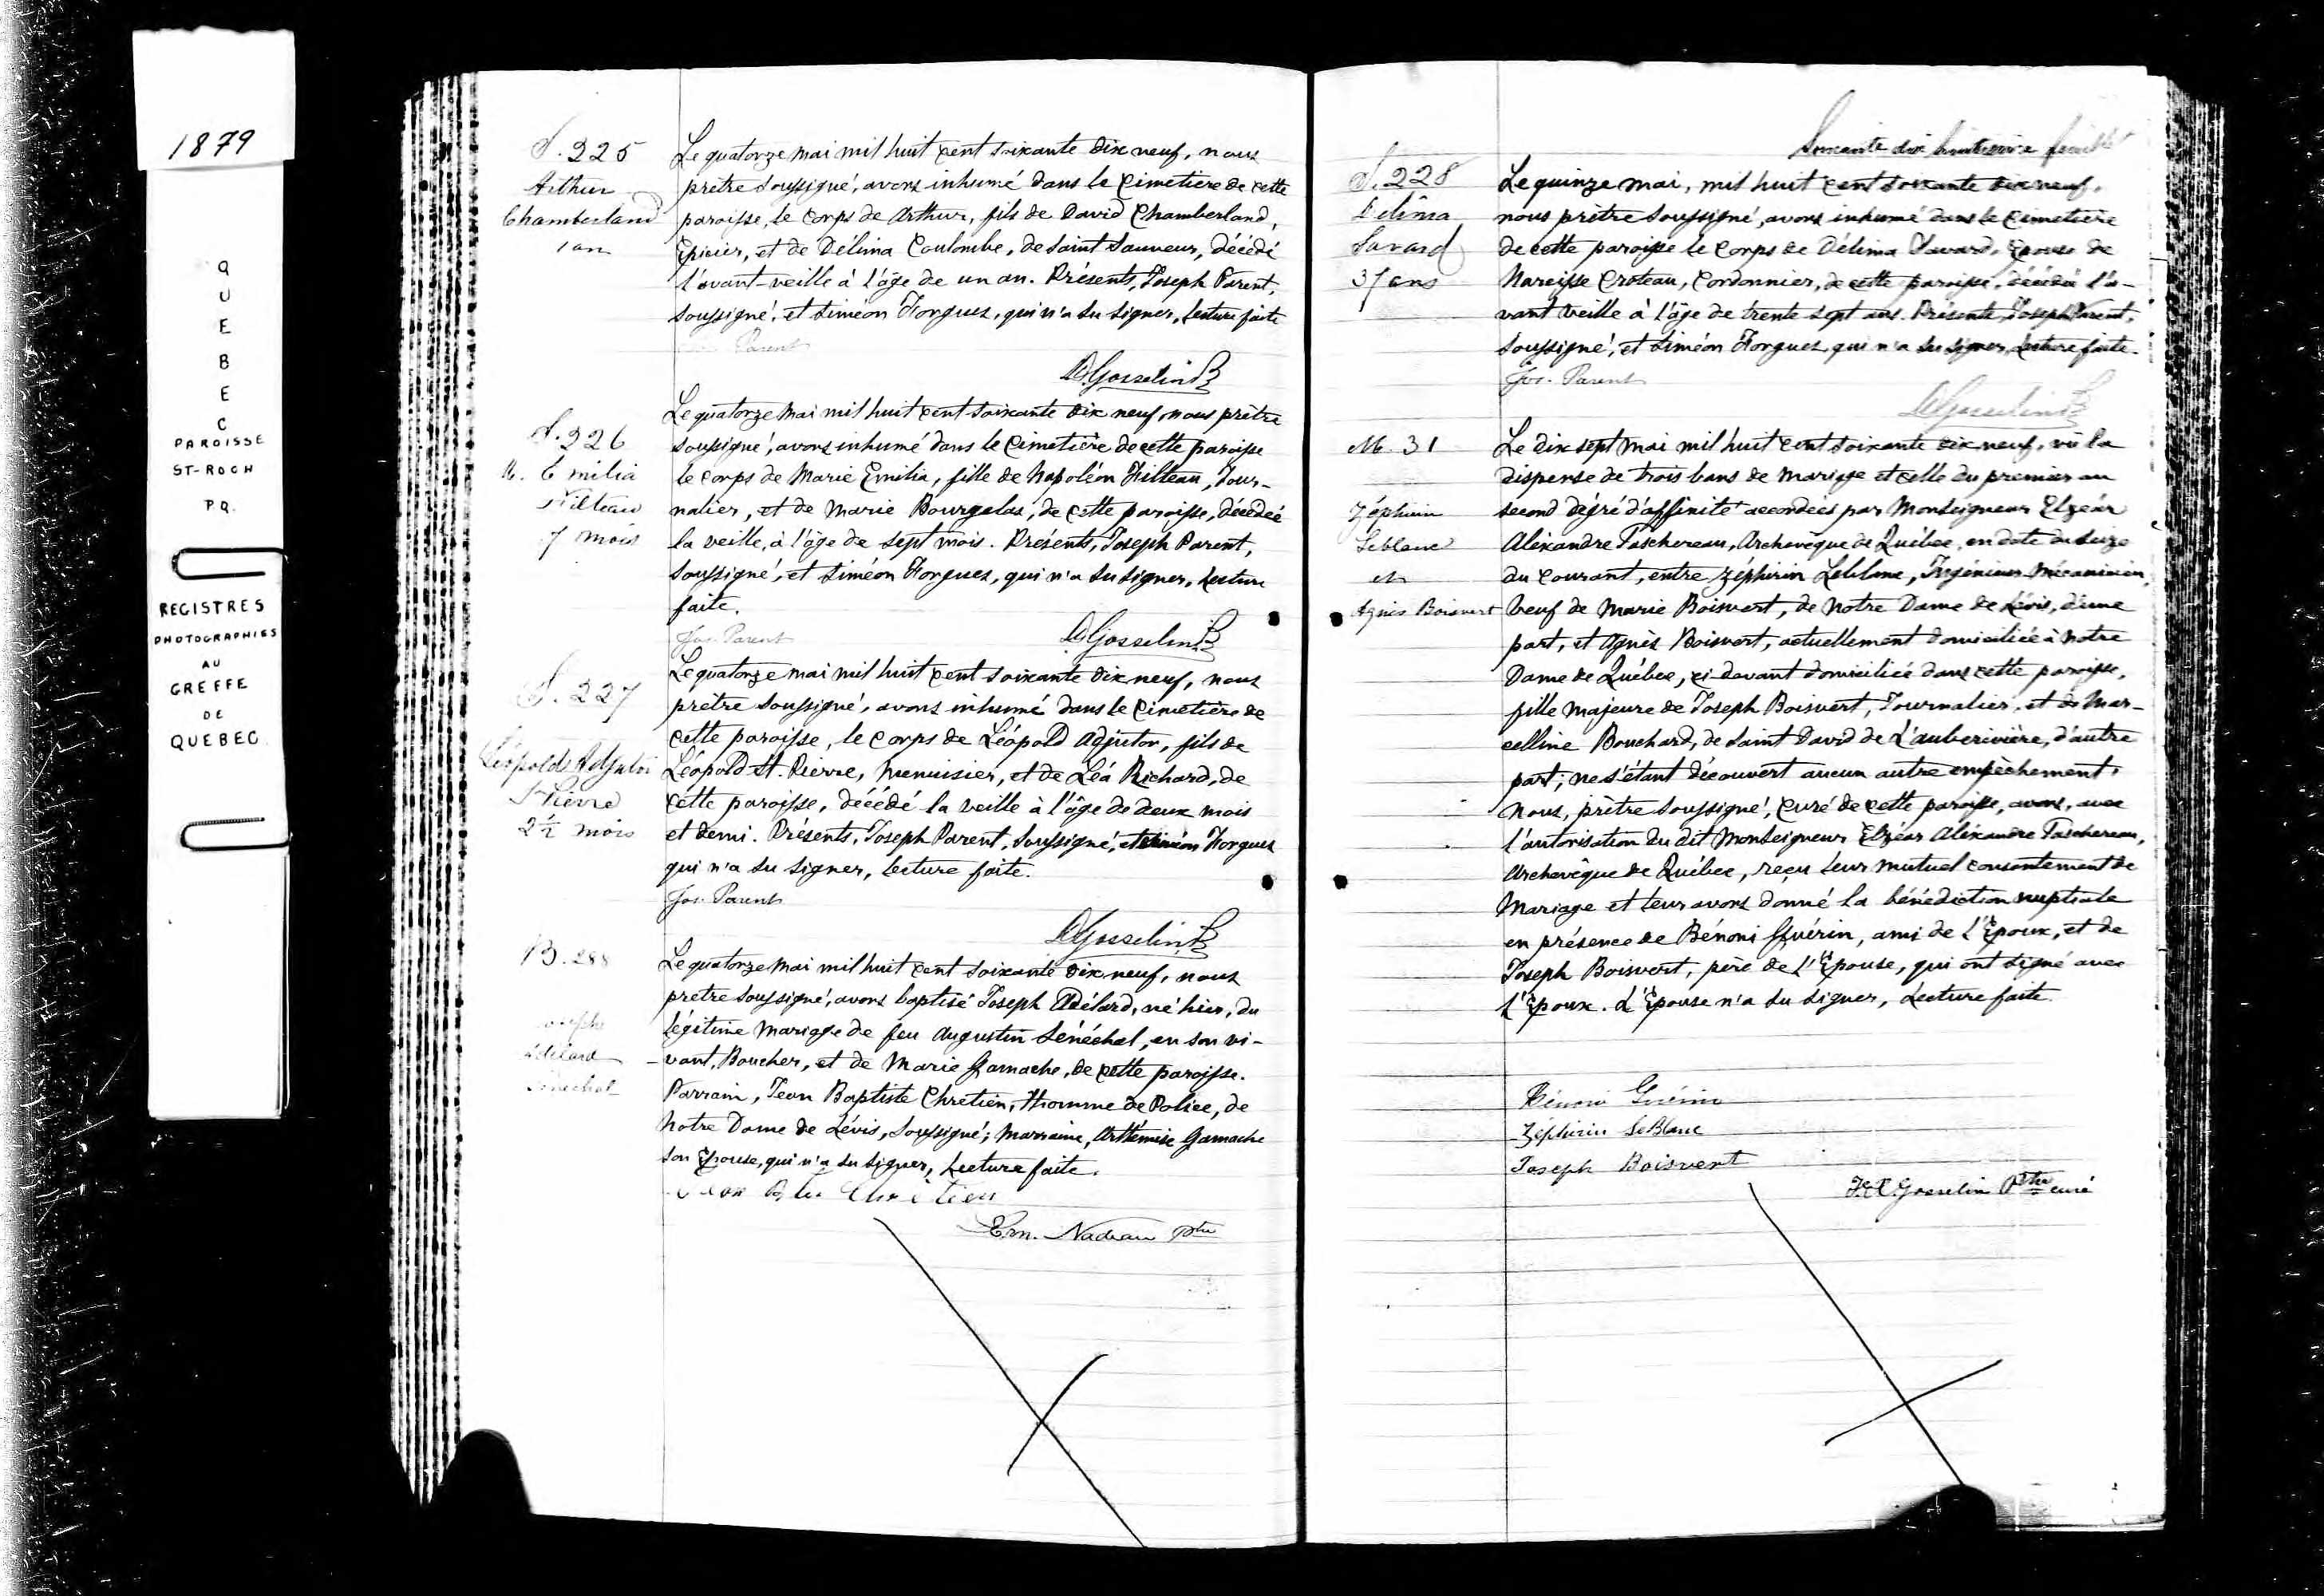 1879
QUEBEC
PAROISSE
ST-ROCH
P.Q.
REGISTRES
PHOTOGRAPHIES
AU
GREFFE
DE
QUEBEC
S. 225
Arthur
Chamberland
1 an
Le quatorze mai mil huit cent soixante dix neuf, nous
prêtre soussigné, avons inhumé dans le Cimetière de cette
paroisse, le corps de Arthur, fils de David Chamberland,
Epicier, et de Délima Coulombe, de Saint Sauveur, décédé
l'avant-veille à l'âge de un an. Présents, Joseph Parent,
soussigné, et Siméon Forgues, qui n'a su signer, lecture faite
Parent
D Gosselin
S. 226
M. Emilia
Filteau
7 mois
Le quatorze mai mil huit cent soixante dix neuf nous prêtre
soussigné, avons inhumé dans le Cimetière de cette paroisse
le corps de Marie Emilia, fille de Napoléon Filteau, Jour-
nalier, et de Marie Bourgelas, de cette paroisse, décédée
la veille, à l'âge de sept mois. Présents, Joseph Parent,
soussigné, et Siméon Forgues, qui n'a su signer, Lecture
faite.
Jos. Parent
D Gosselin
S. 227
Léopold Adjutor
St Pierre
2 1/2 mois
Le quatorze mai mil huit cent soixante dix neuf, nous
prêtre soussigné, avons inhumé dans le Cimetière de
cette paroisse, le corps de Léopold Adjutor, fils de
Léopold St. Pierre, Menuisier, et de Léa Richard, de
cette paroisse, décédé la veille à l'âge de deux mois
et demi. Présents, Joseph Parent, soussigné, et Siméon Forgues
qui n'a su signer, lecture faite.
Jos. Parent
D Gosselin
B. 288
Joseph
Adélard
Sénéchal
Le quatorze mai mil huit cent soixante dix neuf, nous
prêtre soussigné, avons baptisé Joseph Adélard, né hier, du
légitime mariage de feu Augustin Sénéchal, en son vi-
-vant, Boucher, et de Marie Gamache, de cette paroisse.
Parrain, Jean Baptiste Chretien, Homme de Police, de
Notre Dame de Lévis, soussigné; Marraine, Arthémise Gamache
son Epouse, qui n'a su signer, Lecture faite.
Jean Bte Chretien
Ern. Nadeau Ptre
Soixante dix huitième feuillet
S. 228
Délima
Savard
37 ans
Le quinze mai, mil huit cent soixante dix neuf,
nous prêtre soussigné, avons inhumé dans le Cimetière
de cette paroisse le corps de Délima Savard, Epouse de
Narcisse Croteau, Cordonnier, de cette paroisse, décédée l'a-
vant veille à l'âge de trente sept ans. Présents, Joseph Parent,
soussigné, et Siméon Forgues, qui n'a su signer, Lecture faite.
Jos. Parent
D Gosselin
M. 31
Zéphirin
Leblanc
et
Agnès Boisvert
Le dix sept mai mil huit cent soixante dix neuf, vû la
dispense de trois bans de mariage et celle du premier au
second dégré d'affinité accordées par Monseigneur Elzéar
Aléxandre Taschereau, Archevêque de Québec, en date du seize
du courant, entre Zéphirin Leblanc, Ingénieur Mécanicien,
veuf de Marie Boisvert, de Notre Dame de Lévis, d'une
part, et Agnès Boisvert, actuellement domiciliée à Notre
Dame de Québec, ci-devant domiciliée dans cette paroisse,
fille majeure de Joseph Boisvert, Journalier, et de Mar-
celline Bouchard, de Saint David de L'auberivière, d'autre
part; ne s'étant découvert aucun autre empêchement,
nous, prêtre soussigné, Curé de cette paroisse, avons, avec
l'autorisation du dit Monseigneur Elzéar Aléxandre Taschereau,
Archevêque de Québec, reçu leur mutuel consentement de
Mariage et leur avons donné la bénédiction nuptiale
en présence de Bénoni Guérin, ami de l'Epoux, et de
Joseph Boisvert, père de l'Epouse, qui ont signé avec
l'Epoux. L'Epouse n'a su signer, Lecture faite.
Bénoni Guérin
Zéphirin LeBlanc
Joseph Boisvert
Gosselin Ptre curé